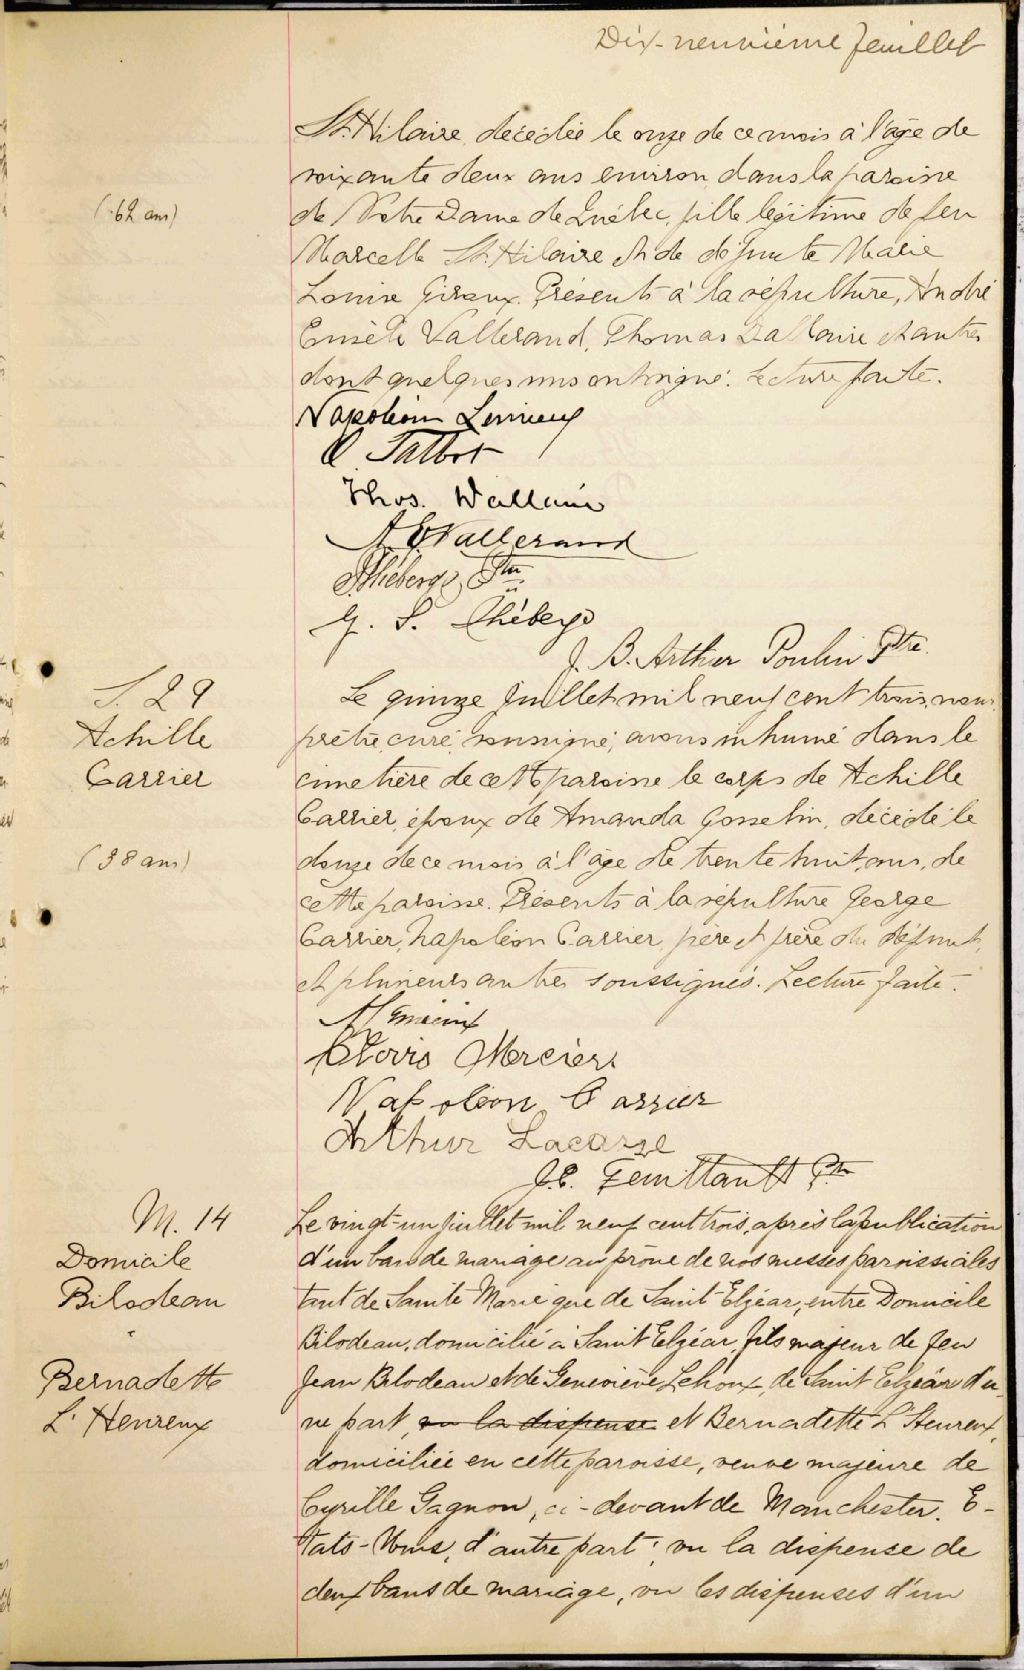 Dix-neuvième feuillet
St. Hilaire, décédée le onze de ce mois à l'âge de
soixante deux ans environ dans la paroisse
(62 ans)
de Notre Dame de Québec, fille légitime de feu
Marcelle St. Hilaire et de défunte Marie
Louise Giroux. Présents à la sépulture, André
Eusèbe Vallerand, Thomas Dallaire et autres
dont quelques uns ont signé. Lecture faite.
Napoléon Lemieux
O. Talbot
Thos. Dallaire
A. E. Vallerand
Théberge, Ptre
G. S. Théberge
J. B. Arthur Poulin Ptre.
S. 29
Achille
Carrier
(38 ans)
Le quinze Juillet mil neuf cent trois, nous,
prêtre, curé, soussigné, avons inhumé dans le
cimetière de cette paroisse le corps de Achille
Carrier, époux de Amanda Gosselin, décédé le
douze de ce mois à l'âge de trente huit, ans, de
cette paroisse. Présents à la sépulture George
Carrier, Napoléon Carrier, père et frère du défunt,
et plusieurs autres soussignés. Lecture faite.
Mercier
Napoléon Carrier
Arthur Lacasse
J.E. Feuiltault Ptre
M. 14
Domicile
Bilodeau
Bernadette
L'Heureux
Le vingt-un juillet mil neuf cent trois, après la publication
d'un ban de mariage au prône de nos messes paroissiales
tant de Sainte Marie que de Saint-Elzéar, entre Domicile
Bilodeau, domicilié à Saint Elzéar, fils majeur de feu
Jean Bilodeau et de Geneviève Lehoux, de Saint Elzéar d'u-
ne part, vu la dispense et Bernadette L'Heureux,
domiciliée en cette paroisse, veuve majeure de
Cyrille Gagnon, ci-devant de Manchester, E-
tats-Unis, d'autre part; vu la dispense de
deux bans de mariage, vu les dispenses d'un